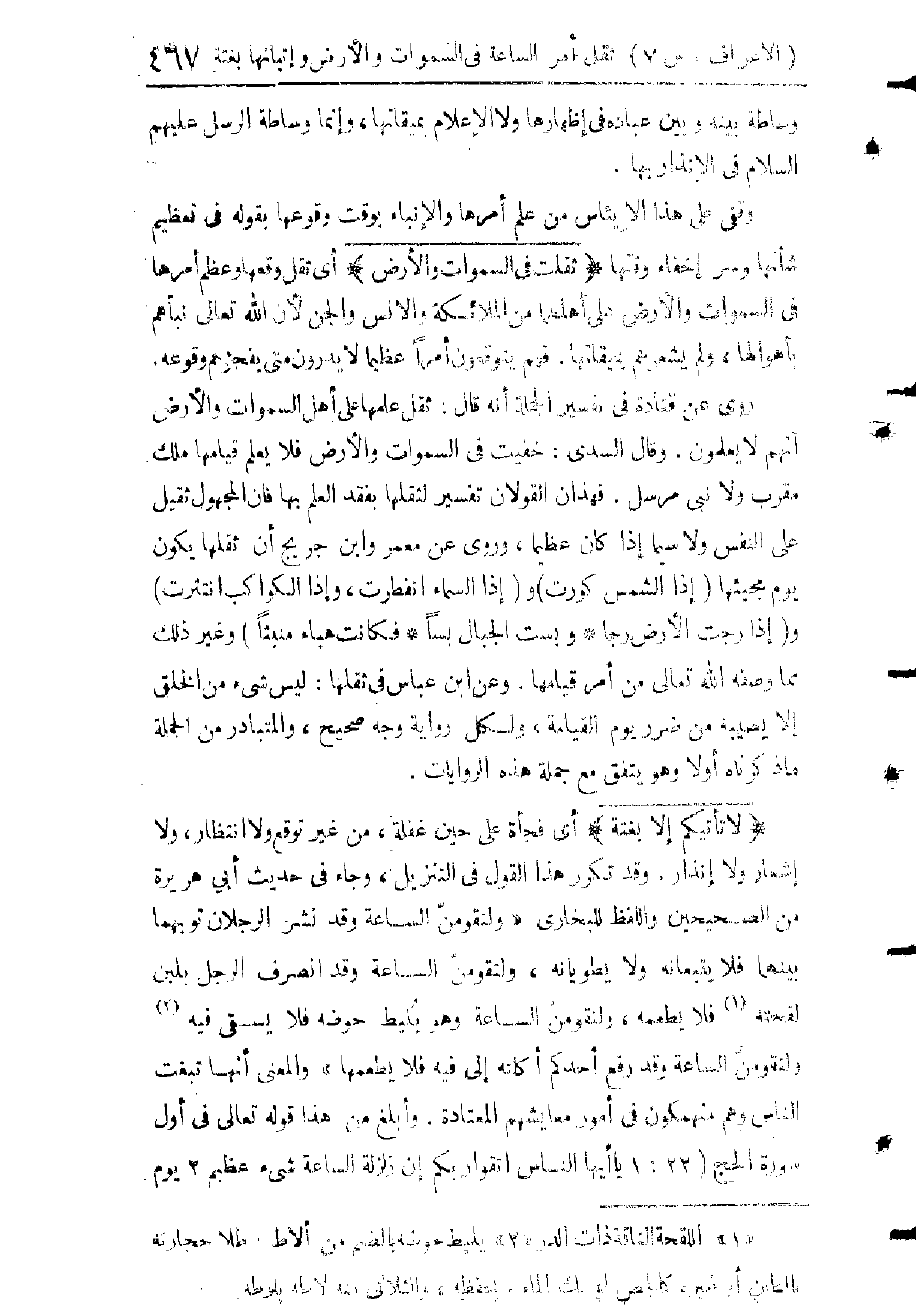 ( الأعراف . س ٧ ) ثقل أمر الساعة فى السموات والأرض وإتيانها بغتة ٤٦٧
وساطة بينه وبين عباده فى إظهارها ولا الإعلام بميقاتها ، وإنما وساطة الرسل عليهم
السلام فى الإنذار بها .
وقفى على هذا الايئاس من علم أمرها والإنباء بوقت وقوعها بقوله فى تعظيم
شأنها وسر إخفاء وقتها ﴿ ثقلت فى السموات والأرض ﴾ أى ثقل وقعها وعظم أمرها
فى السموات والأرض على أهلهما من الملائكة والانس والجن لأن الله تعالى نبأهم
بأهوالها ، ولم يشعرهم بميقاتها . فهم يتوقعون أمراً عظيما لا يدرون متى يفجؤهم وقوعه .
روى عن قتادة فى تفسير الجملة أنه قال : ثقل علمها على أهل السموات والأرض
أنهم لا يعلمون . وقال السدى : خفيت فى السموات والأرض فلا يعلم قيامها ملك
مقرب ولا نبى مرسل . فهذان القولان تفسير لثقلها بفقد العلم بها فان المجهول ثقيل
على النفس ولا سيما إذا كان عظيما ، وروى عن معمر وابن جريج أن ثقلها يكون
يوم مجيئها ( إذا الشمس كورت ) و ( إذا السماء انفطرت ، وإذا الكواكب انتثرت )
و ( إذا رجت الأرض رجا * وبست الجبال بسّاً * فكانت هباء منبثّاً ) وغير ذلك
مما وصفه الله تعالى من أمر قيامها . وعن ابن عباس فى ثقلها : ليس شىء من الخلق
إلا يصيبه من ضرر يوم القيامة ، ولكل رواية وجه صحيح ، والمتبادر من الجملة
ماذكرناه أولا وهو يتفق مع جملة هذه الروايات .
﴿ لا تأتيكم إلا بغتة ﴾ أى فجأة على حين غفلة ، من غير توقع ولا انتظار ، ولا
إشعار ولا إنذار . وقد تكرر هذا القول فى التنزيل ، وجاء فى حديث أبي هريرة
من الصحيحين واللفظ للبخارى « ولتقومنّ الساعة وقد نشر الرجلان ثوبهما
بينهما فلا يتبعانه ولا يطويانه ، ولتقومنّ الساعة وقد انصرف الرجل بلبن
لقحته (١) فلا يطعمه ، ولتقومنّ الساعة وهو يُليط حوضه فلا يسقى فيه (٢)
ولتقومنّ الساعة وقد رفع أحدكم أكلته إلى فيه فلا يطعمها » والمعنى أنها تبغت
الناس وهم منهمكون فى أمور معايشهم المعتادة . وأبلغ من هذا قوله تعالى فى أول
سورة الحج ( ٢٢ : ١ يا أيها الناس اتقوا ربكم إن زلزلة الساعة شىء عظيم ٢ يوم
«١» اللقحة الناقة ذات الدر «٢» يليط حوضه بالضم من ألاط . طلا حجارته
بالطين أو غيره كالجص